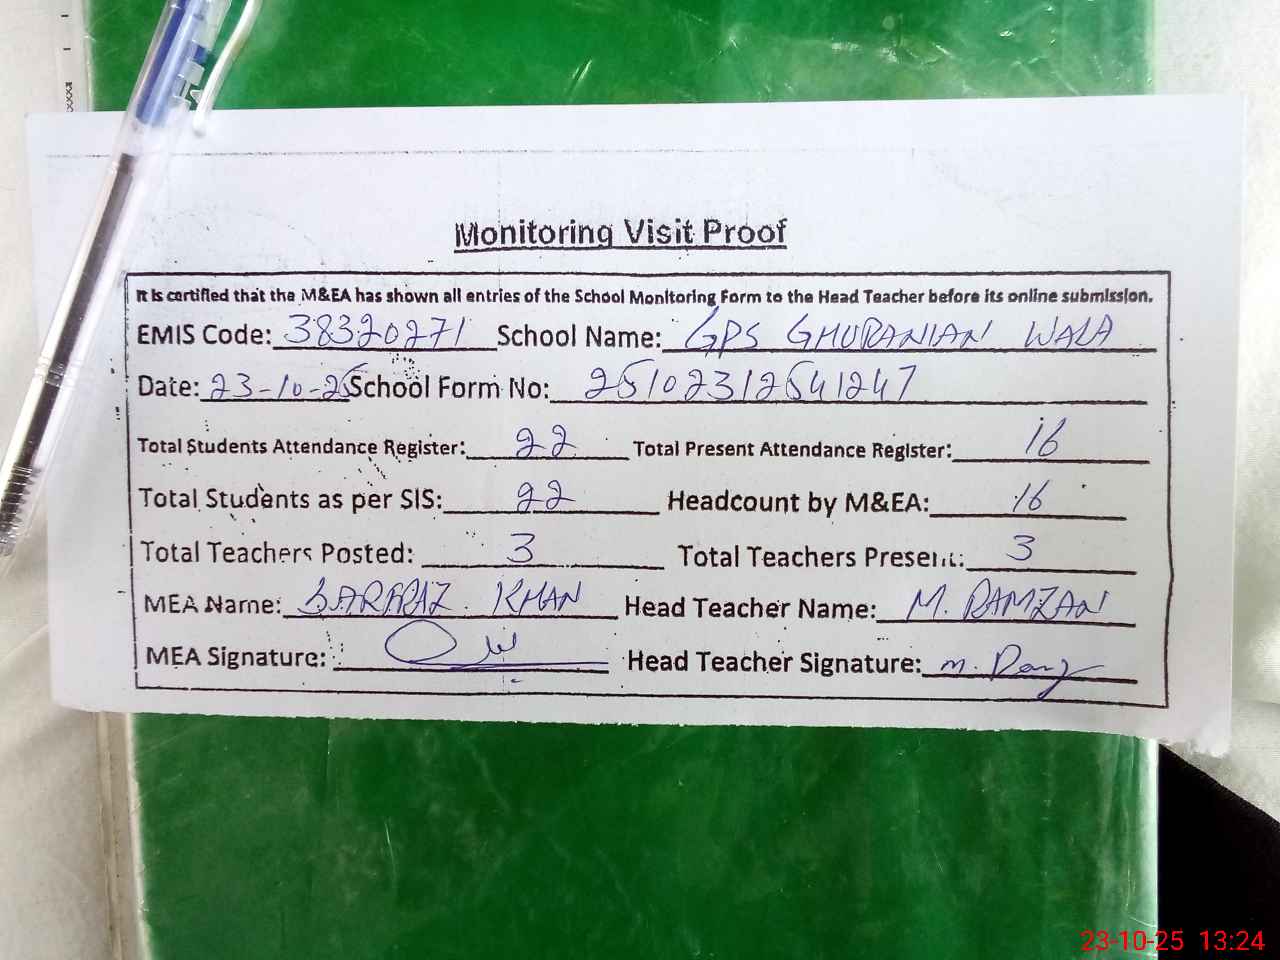 Monitoring Visit Proof
It is certified that the M&EA has shown all entries of the School Monitoring Form to the Head Teacher before its online submission.
EMIS Code: 38320271 School Name: GPS GHURANIAN WALA
Date: 23-10-25 School Form No: 25102312541247
Total Students Attendance Register: 22 Total Present Attendance Register: 16
Total Students as per SIS: 22 Headcount by M&EA: 16
Total Teachers Posted: 3 Total Teachers Present: 3
MEA Name: SARFRAZ KHAN Head Teacher Name: M. RAMZAN
MEA Signature: Head Teacher Signature: M.
23-10-25 13:24